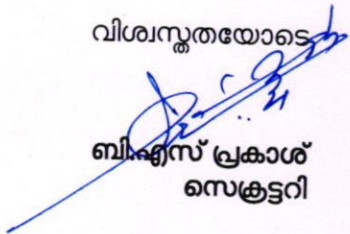 വിശ്വസ്തതയോടെ
ബി.എസ് പ്രകാശ്
സെക്രട്ടറി